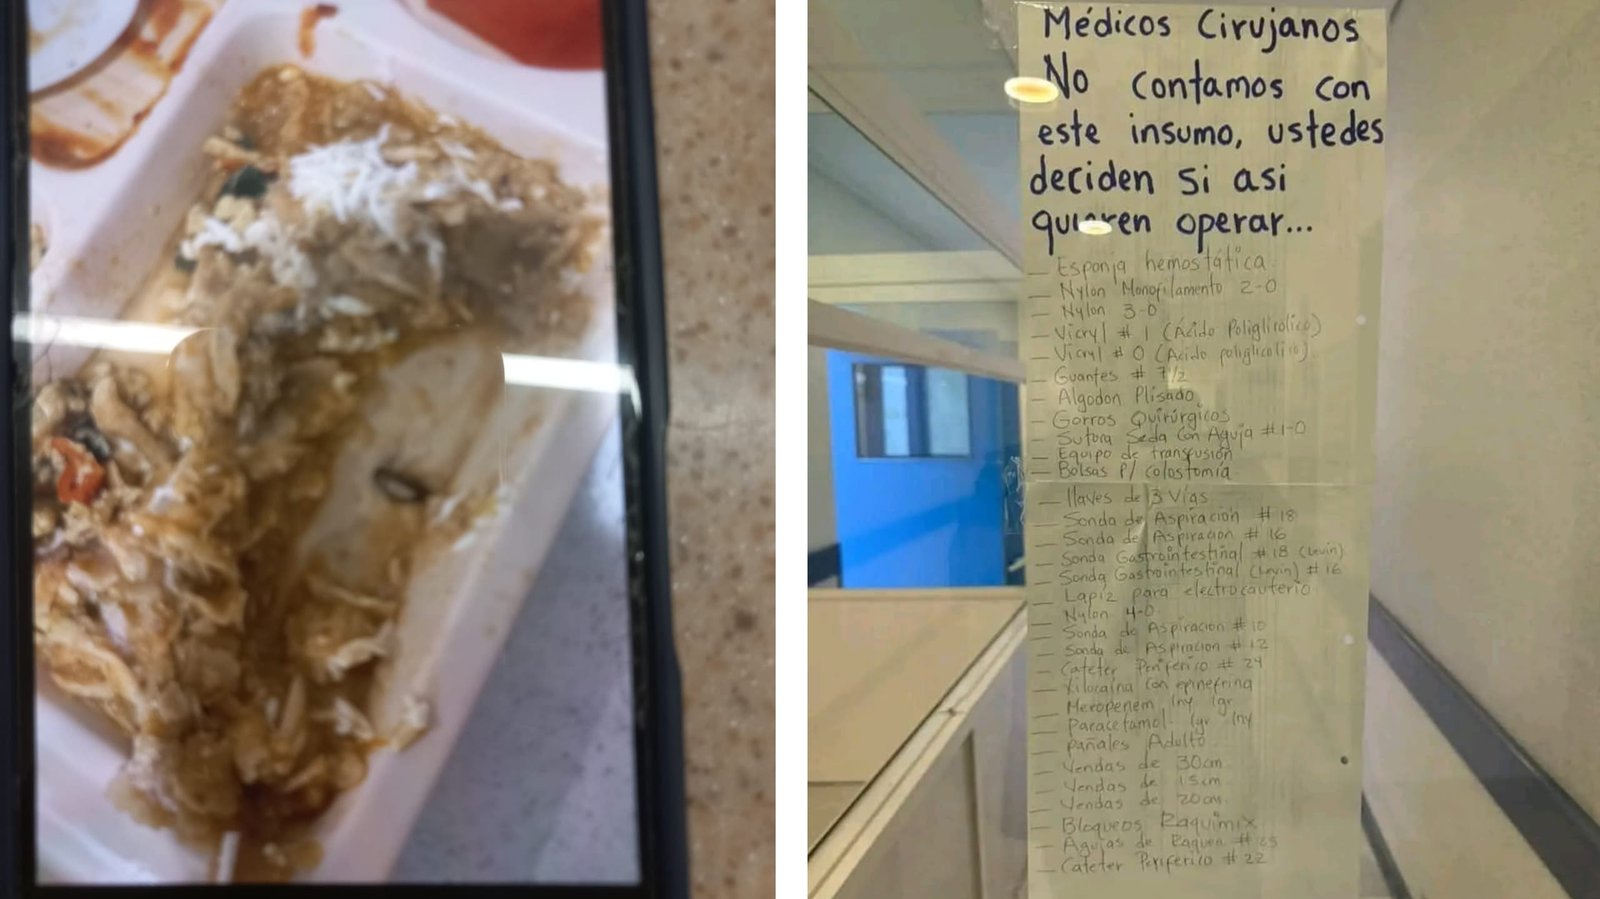 Médicos Cirujanos
No contamos con
este insumo, ustedes
deciden si asi
quieren operar...
— Esponja hemostática
— Nylon Monofilamento 2-0
— Nylon 3-0
— Vicryl # 1 (Ácido Poliglirolico)
— Vicryl # 0 (Acido poliglicolico)
— Guantes # 7 1/2
— Algodon Plisado
— Gorros Quirúrgicos
— Sutura Seda con Aguja # 1-0
— Equipo de transfusión
— Bolsas P/ colostomía
— llaves de 3 vías
— Sonda de Aspiración # 18
— Sonda de Aspiracion # 16
— Sonda Gastrointestinal # 18 (Levin)
— Sonda Gastrointestinal (Levin) # 16
— Lapiz para electrocauterio
— Nylon 4-0
— Sonda de Aspiracion # 10
— Sonda de Aspiracion # 12
— Cateter Periferico # 24
— Xilocaina con epinefrina
— Meropenem Iny 1gr
— Paracetamol 1gr Iny
— pañales Adulto
— Vendas de 30cm
— Vendas de 15cm
— Vendas de 20cm
— Bloqueos Raquimix
— Agujas de Raquea # 25
— Cateter Periferico # 22